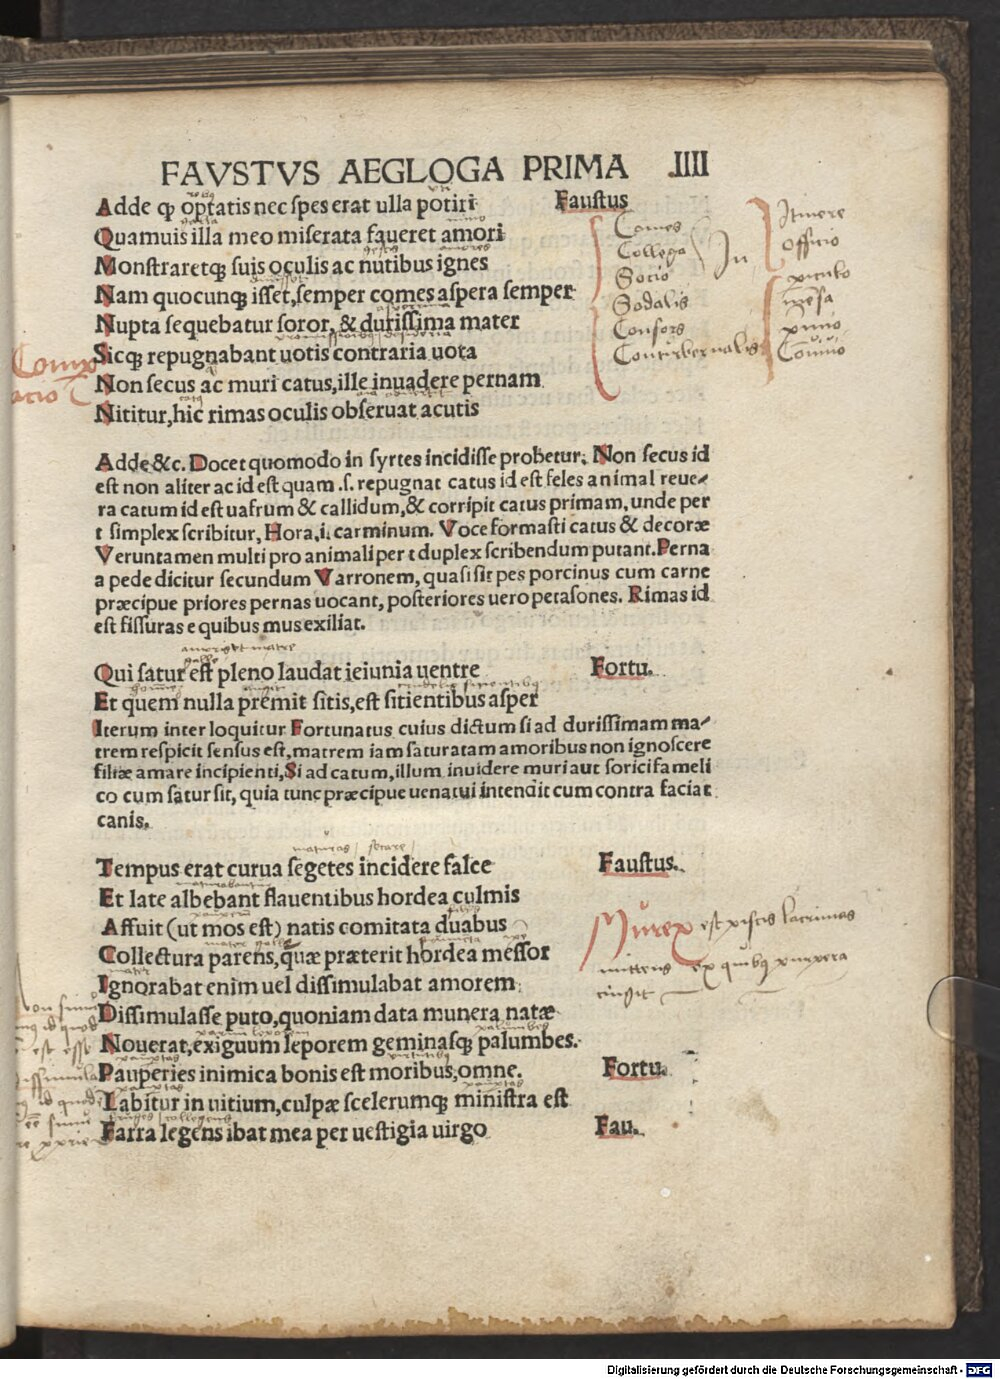 FAVSTVS AEGLOGA PRIMA .IIII
Adde qꝫ optatis nec ſpes erat ulla potiri Fauſtus
Quamuis illa meo miſerata faueret amori
Monſtraretqꝫ ſuis oculis ac nutibus ignes
Nam quocunqꝫ iſſet, ſemper comes aſpera ſemper
Nupta ſequebatur ſoror, & duriſſima mater
Sicqꝫ repugnabant uotis contraria uota
Non ſecus ac muri catus, ille inuadere pernam
Nititur, hic rimas oculis obſeruat acutis
Comes
Collega
Socio
Sodalis
Conſors
Conturbernalis
In
Itinere
officio
mēſa
Adde &c. Docet quomodo in ſyrtes incidiſſe probetur. Non ſecus id
eſt non aliter ac id eſt quam .ſ. repugnat catus id eſt feles animal reue-
ra catum id eſt uafrum & callidum, & corripit catus primam, unde per
t ſimplex ſcribitur, Hora, i. carminum. Voce formaſti catus & decoræ
Veruntamen multi pro animali per t duplex ſcribendum putant. Perna
a pede dicitur ſecundum Varronem, quaſi ſit pes porcinus cum carne
præcipue priores pernas uocant, poſteriores uero petaſones. Rimas id
eſt fiſſuras e quibus mus exiliat.
Qui ſatur eſt pleno laudat ieiunia uentre Fortu.
Et quem nulla premit ſitis, eſt ſitientibus aſper
Iterum inter loquitur Fortunatus cuius dictum ſi ad duriſſimam ma-
trem reſpicit ſenſus eſt, matrem iam ſaturatam amoribus non ignoſcere
filiæ amare incipienti, Si ad catum, illum inuidere muri aut ſorici fameli
co cum ſatur ſit, quia tunc præcipue uenatui intendit cum contra faciat
canis.
maturas ſecare
Tempus erat curua ſegetes incidere falce Fauſtus.
Et late albebant flauentibus hordea culmis
Affuit (ut mos eſt) natis comitata duabus
Collectura parens, quæ præterit hordea meſſor
Ignorabat enim uel diſſimulabat amorem:
Diſſimulaſſe puto, quoniam data munera natæ
Nouerat, exiguum leporem geminaſqꝫ palumbes.
Pauperies inimica bonis eſt moribus, omne. Fortu.
Labitur in uitium, culpæ ſcelerumqꝫ miniſtra eſt
Farra legens ibat mea per ueſtigia uirgo Fau.
Murex eſt piſcis lacrimas
mittens ex quibꝫ purpera
tingit
Digitalisierung gefördert durch die Deutsche Forschungsgemeinschaft - DFG